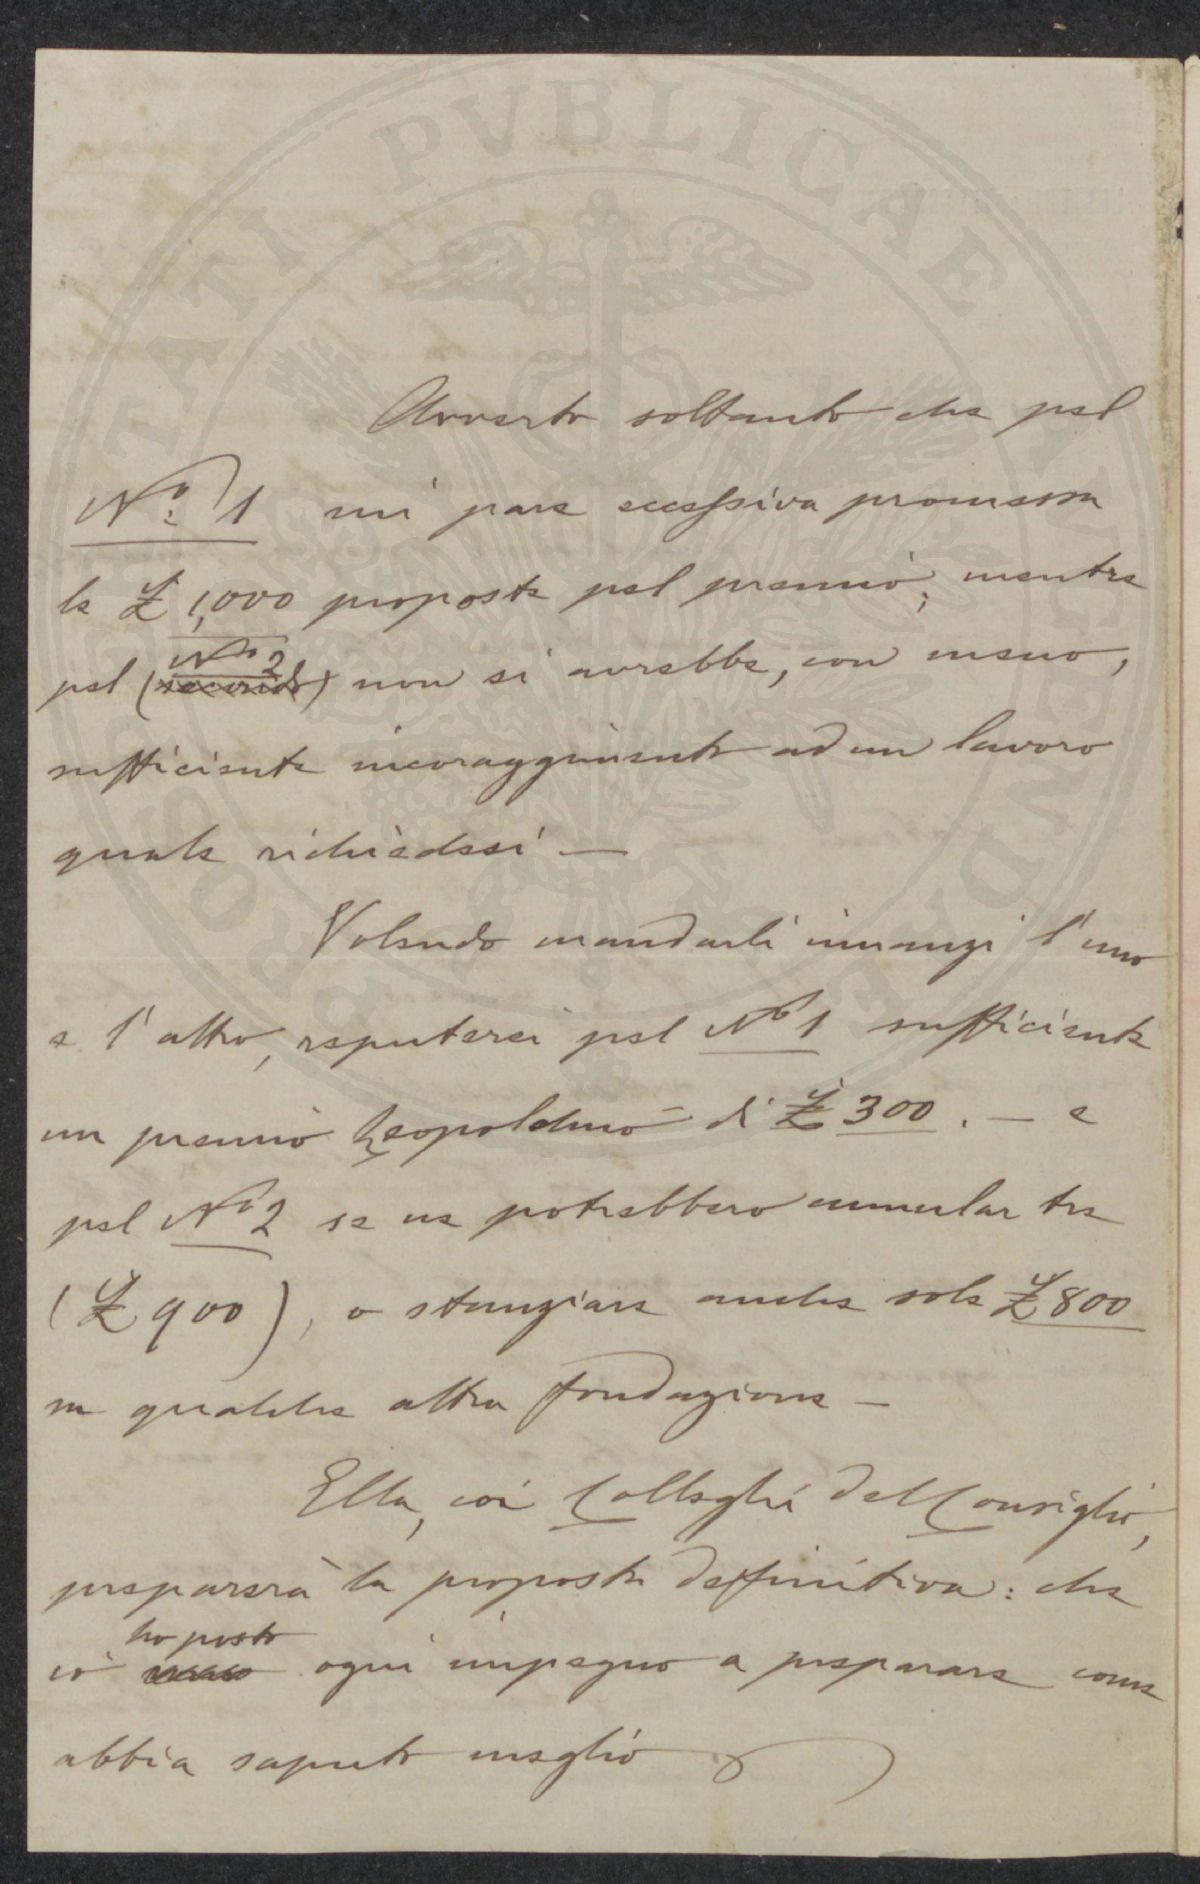 Avverto soltanto che pel
N.º 1 mi pare eccessiva promessa
le £ 1,000 proposte pel premio; mentre
pel (secondo) Nº 2 non si avrebbe, con meno,
sufficiente incoraggimento ad un lavoro
quale richiedesi —
Volendo mandarli innanzi l'uno
e l'altro, reputerei pel Nº 1 sufficiente
un premio Leopoldino di £ 300. — e
pel Nº 2 se ne potrebbero cumular tre
(£ 900), o stanziare anche sole £ 800
su qualche altra fondazione —
Ella, coi Colleghi del Consiglio,
preparerà la proposta deffinitiva: che
io ho posto ogni impegno a preparare come
abbia saputo meglio